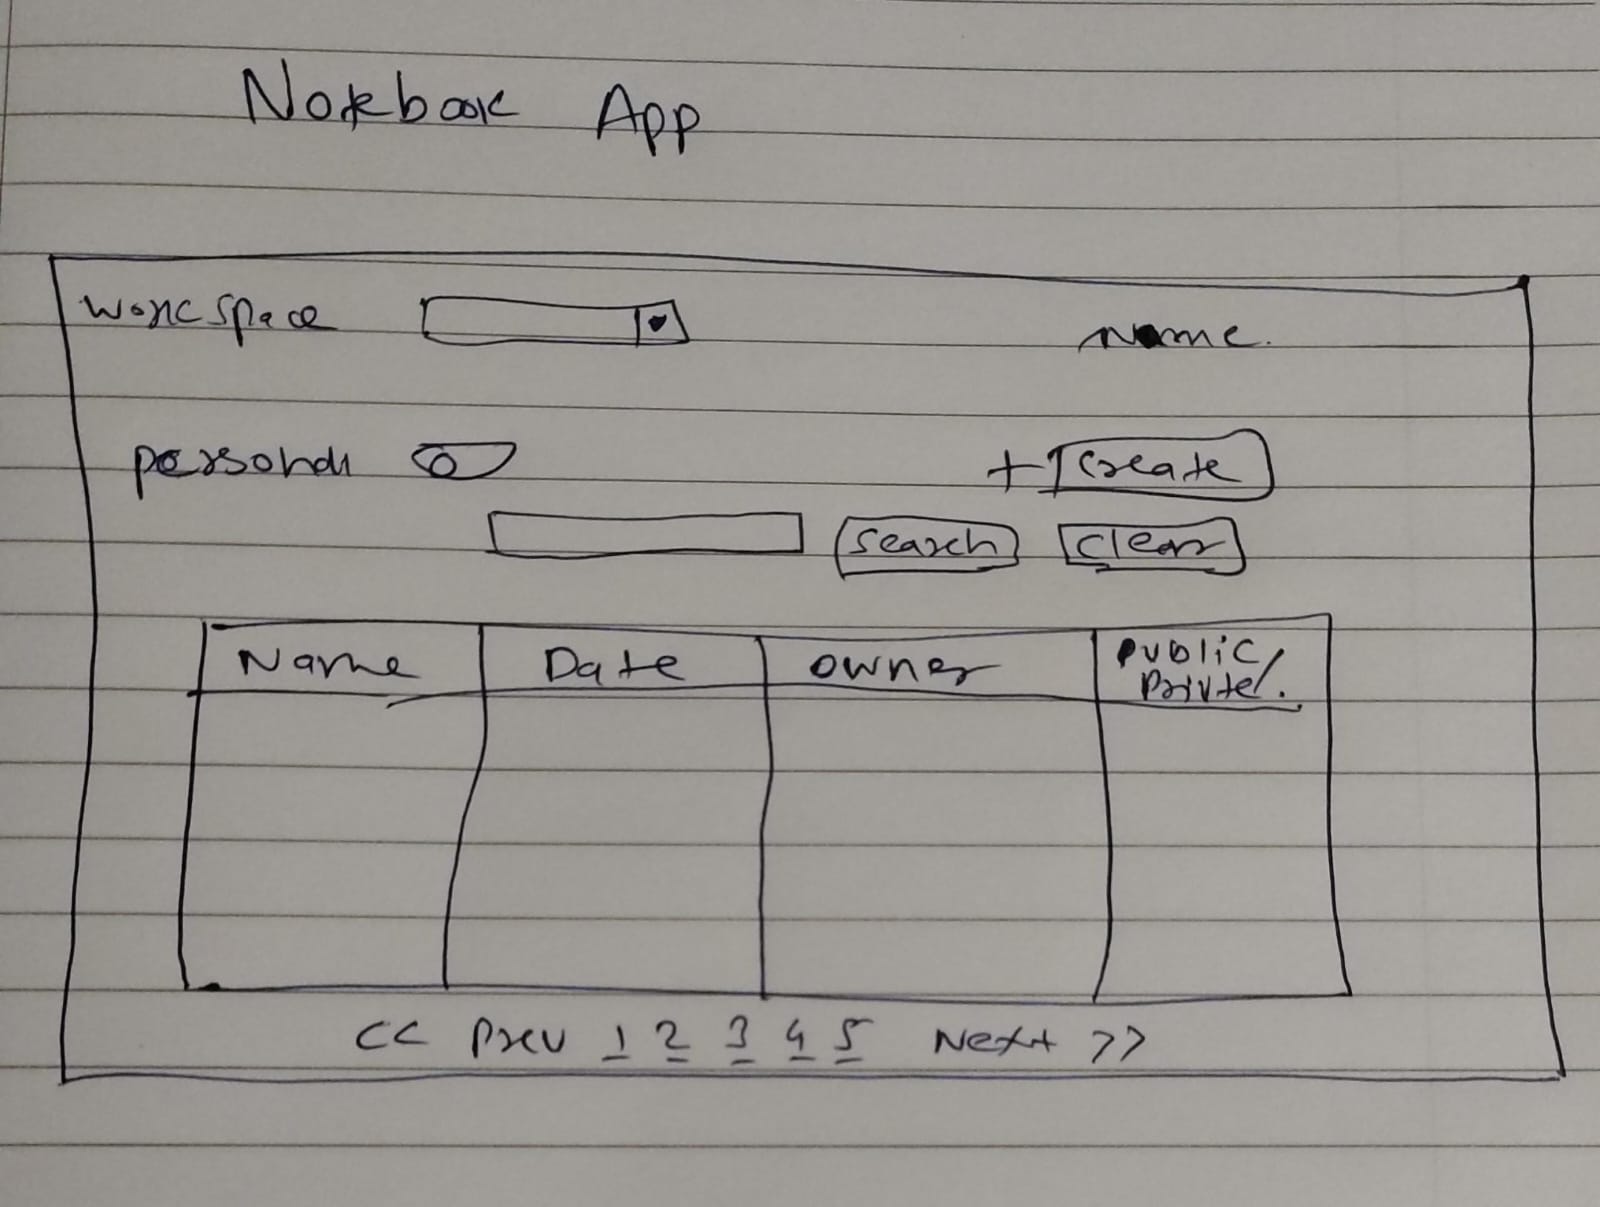 Notebook App
workspace Name.
personal + Create
Search Clear
Name Date owner Public/
Privte.
<< Prev 1 2 3 4 5 Next >>